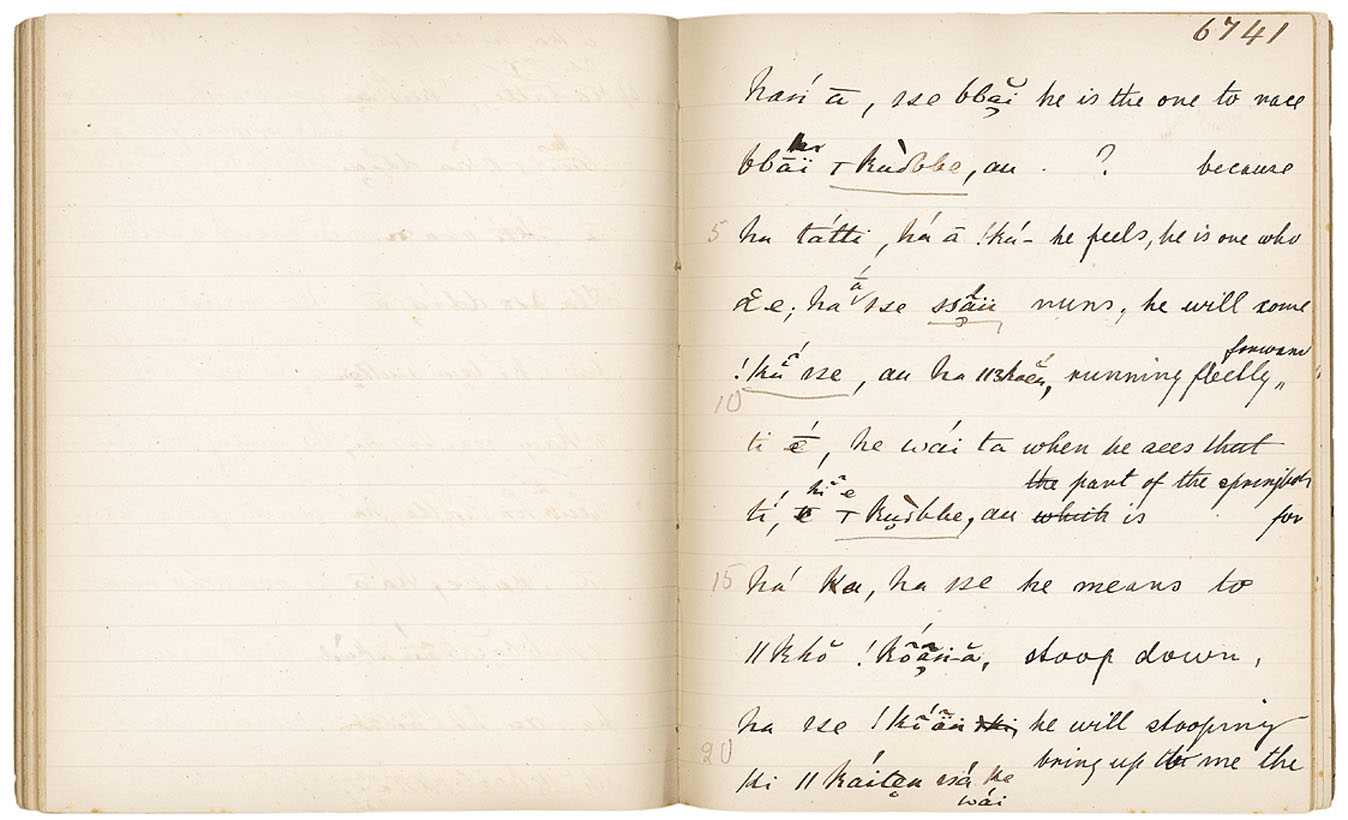 6741
haṅ ā, sse bbāi he is the one to race
bbāï ⊤ kùbbe, au ? because
5 ha tátti, há ā !kú- he feels, he is one who
ᘔe; ha á sse ssāīi runs, he will come
forward
!kuâ sse, au ha ǁ koěn, running fleetly „
10
ti é, he wái ta when he sees that
the part of the springbok
ti, e ⊤ kùbbe, au which is for
15 há ka, ha sse he means to
ǁkhŏ !kõãṅ-ă, stoop down,
ha sse !kõäṅ ki, he will stooping
20 bring up to me the
ki ǁkáitẹn ssá ke
wái